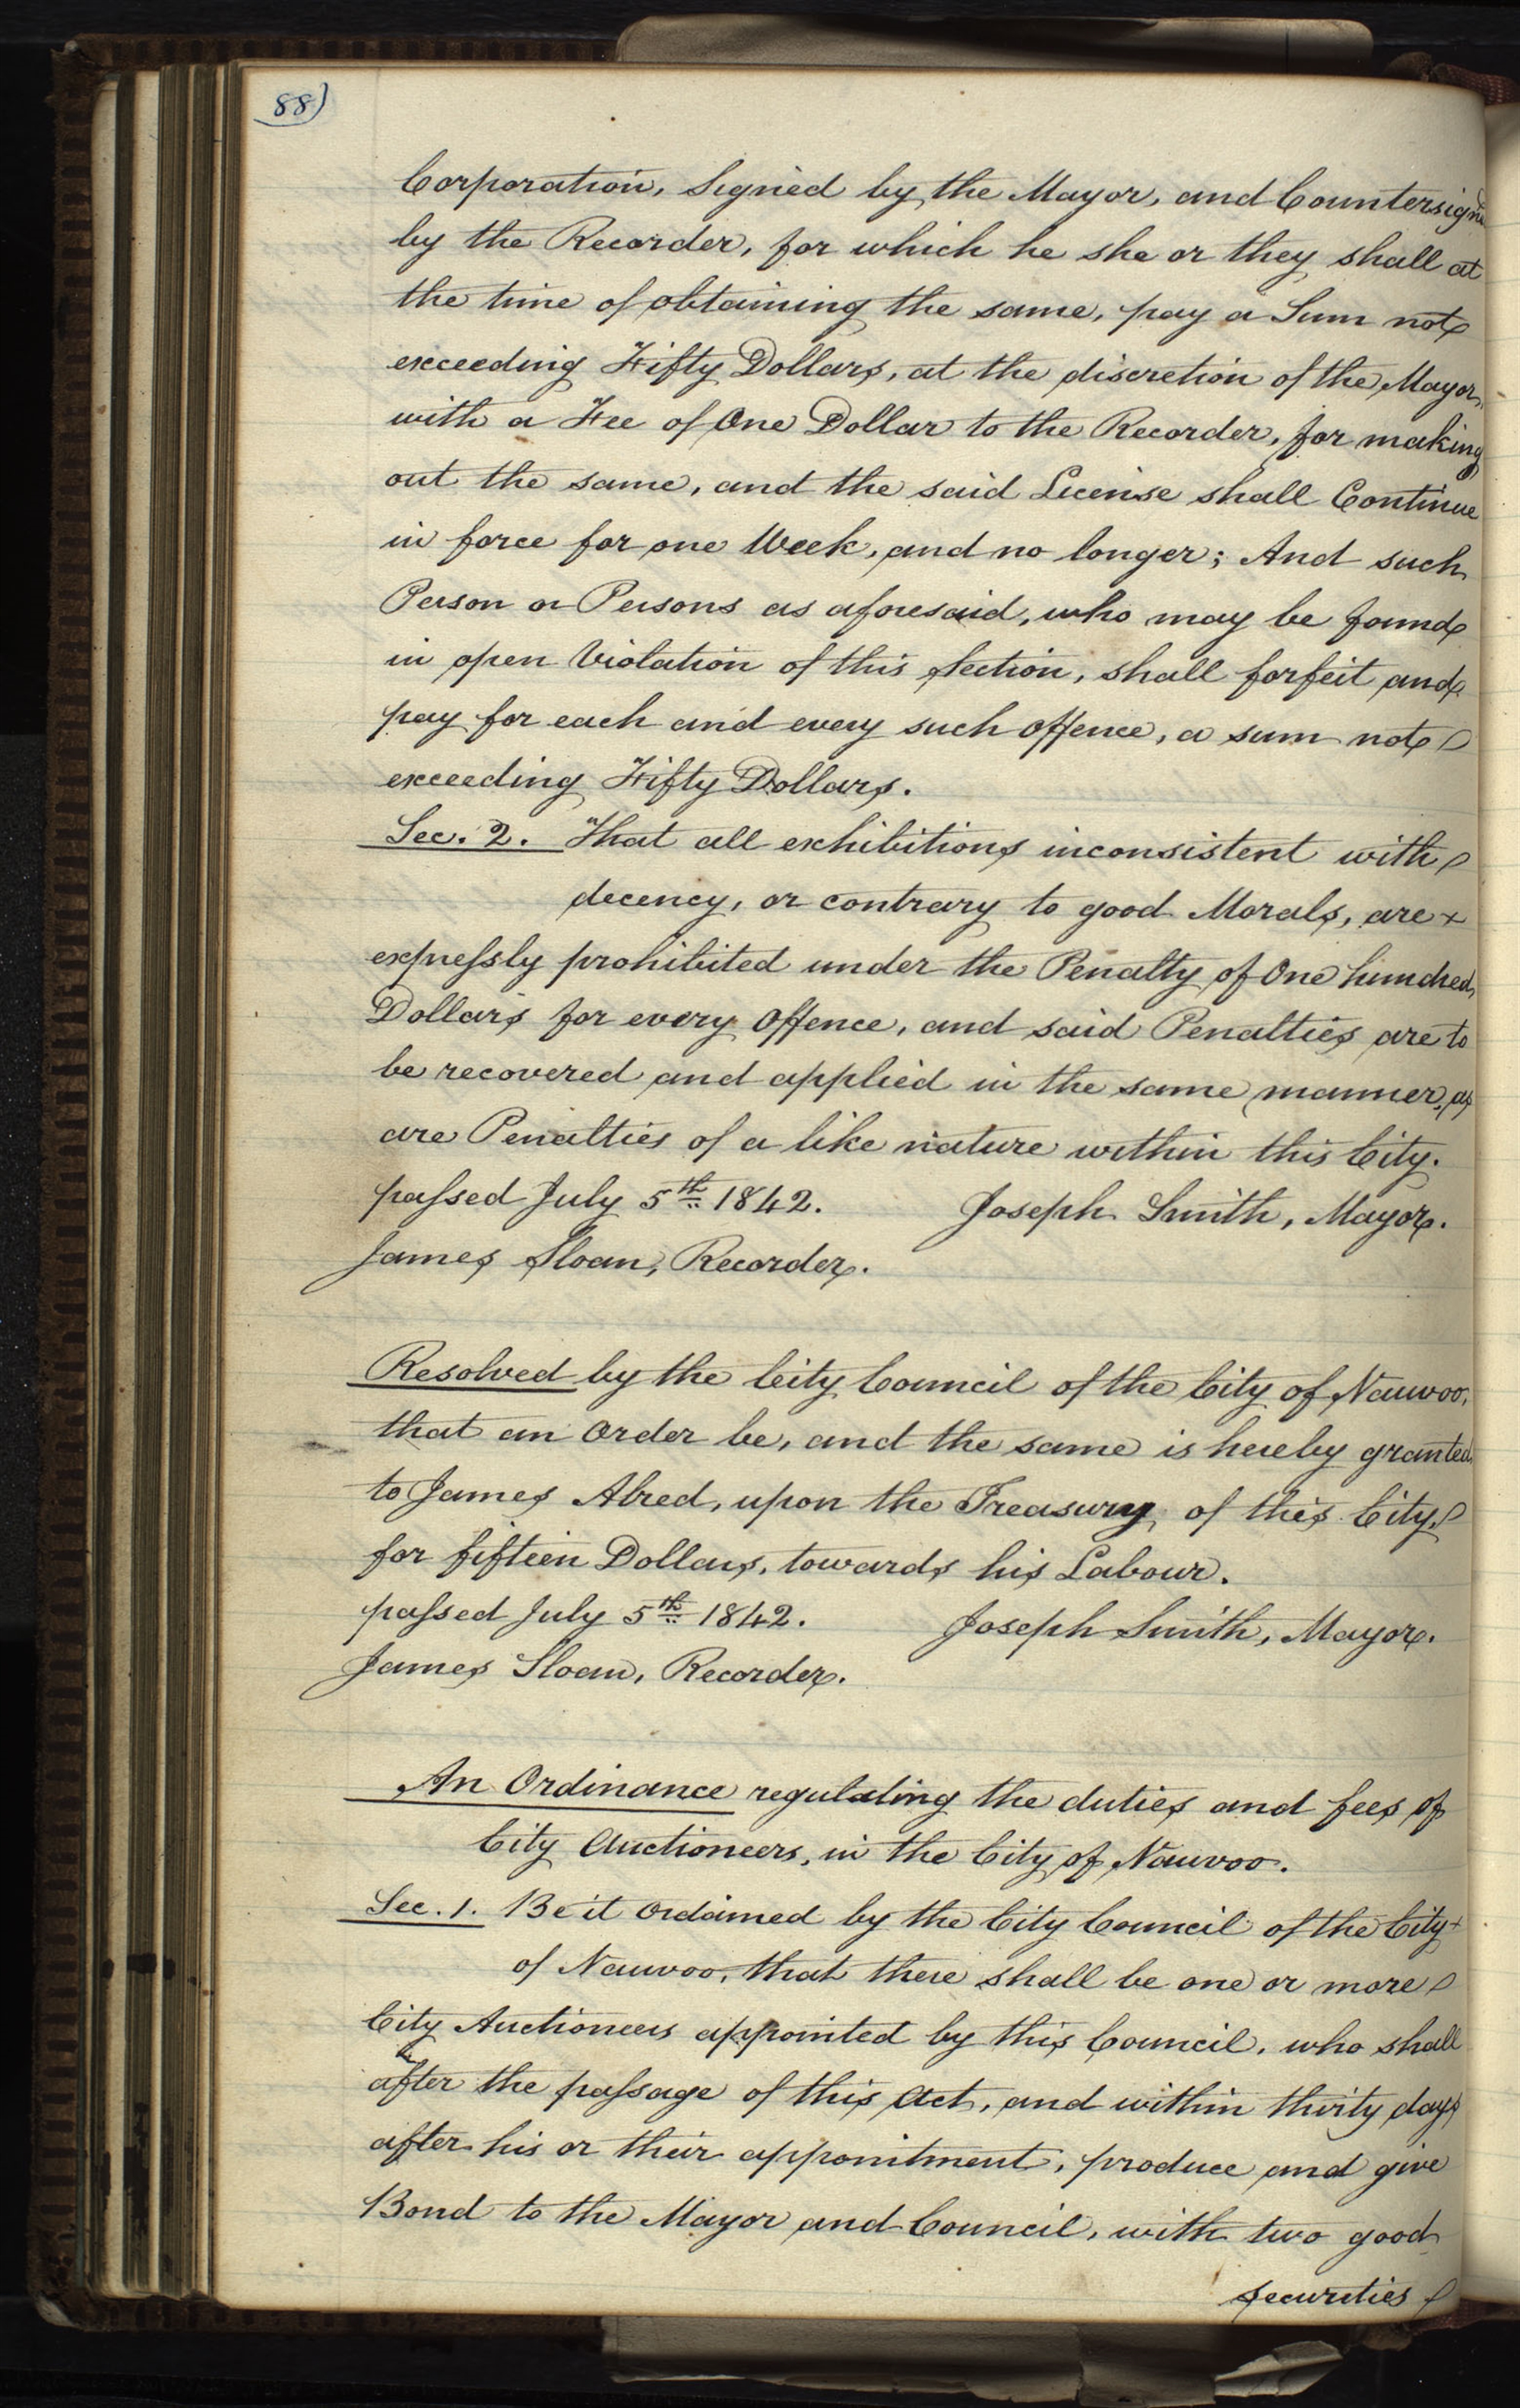 88)
Corporation, Signed by the Mayor, and Countersigned
by the Recorder, for which he she or they shall at
the time of obtaining the same, pay a Sum not
exceeding Fifty Dollars, at the discretion of the Mayor,
with a Fee of One Dollar to the Recorder, for making
out the same, and the said License shall Continue
in force for one Week, and no longer; And such
Person or Persons as aforesaid, who may be found
in open Violation of this Section, shall forfeit and
pay for each and every such offence, a sum not
exceeding Fifty Dollars.
Sec. 2. That all exhibitions inconsistent with
decency, or contrary to good Morals, are
expressly prohibited under the Penalty of One hundred
Dollars for every Offence, and said Penalties are to
be recovered and applied in the same manner, as
are Penalties of a like nature within this City.
passed July 5th 1842. Joseph Smith, Mayor.
James Sloan, Recorder.
Resolved by the City Council of the City of Nauvoo,
that an Order be, and the same is hereby granted
to James Alred, upon the Treasury of this City,
for fifteen Dollars, towards his Labour.
passed July 5th 1842. Joseph Smith, Mayor.
James Sloan, Recorder.
An Ordinance regulating the duties and fees of
City Auctioneers, in the City of Nauvoo.
Sec. 1. Be it Ordained by the City Council of the City
of Nauvoo, that there shall be one or more
City Auctioneers appointed by this Council, who shall
after the passage of this Act, and within thirty days
after his or their appointment, produce and give
Bond to the Mayor and Council, with two good
securities